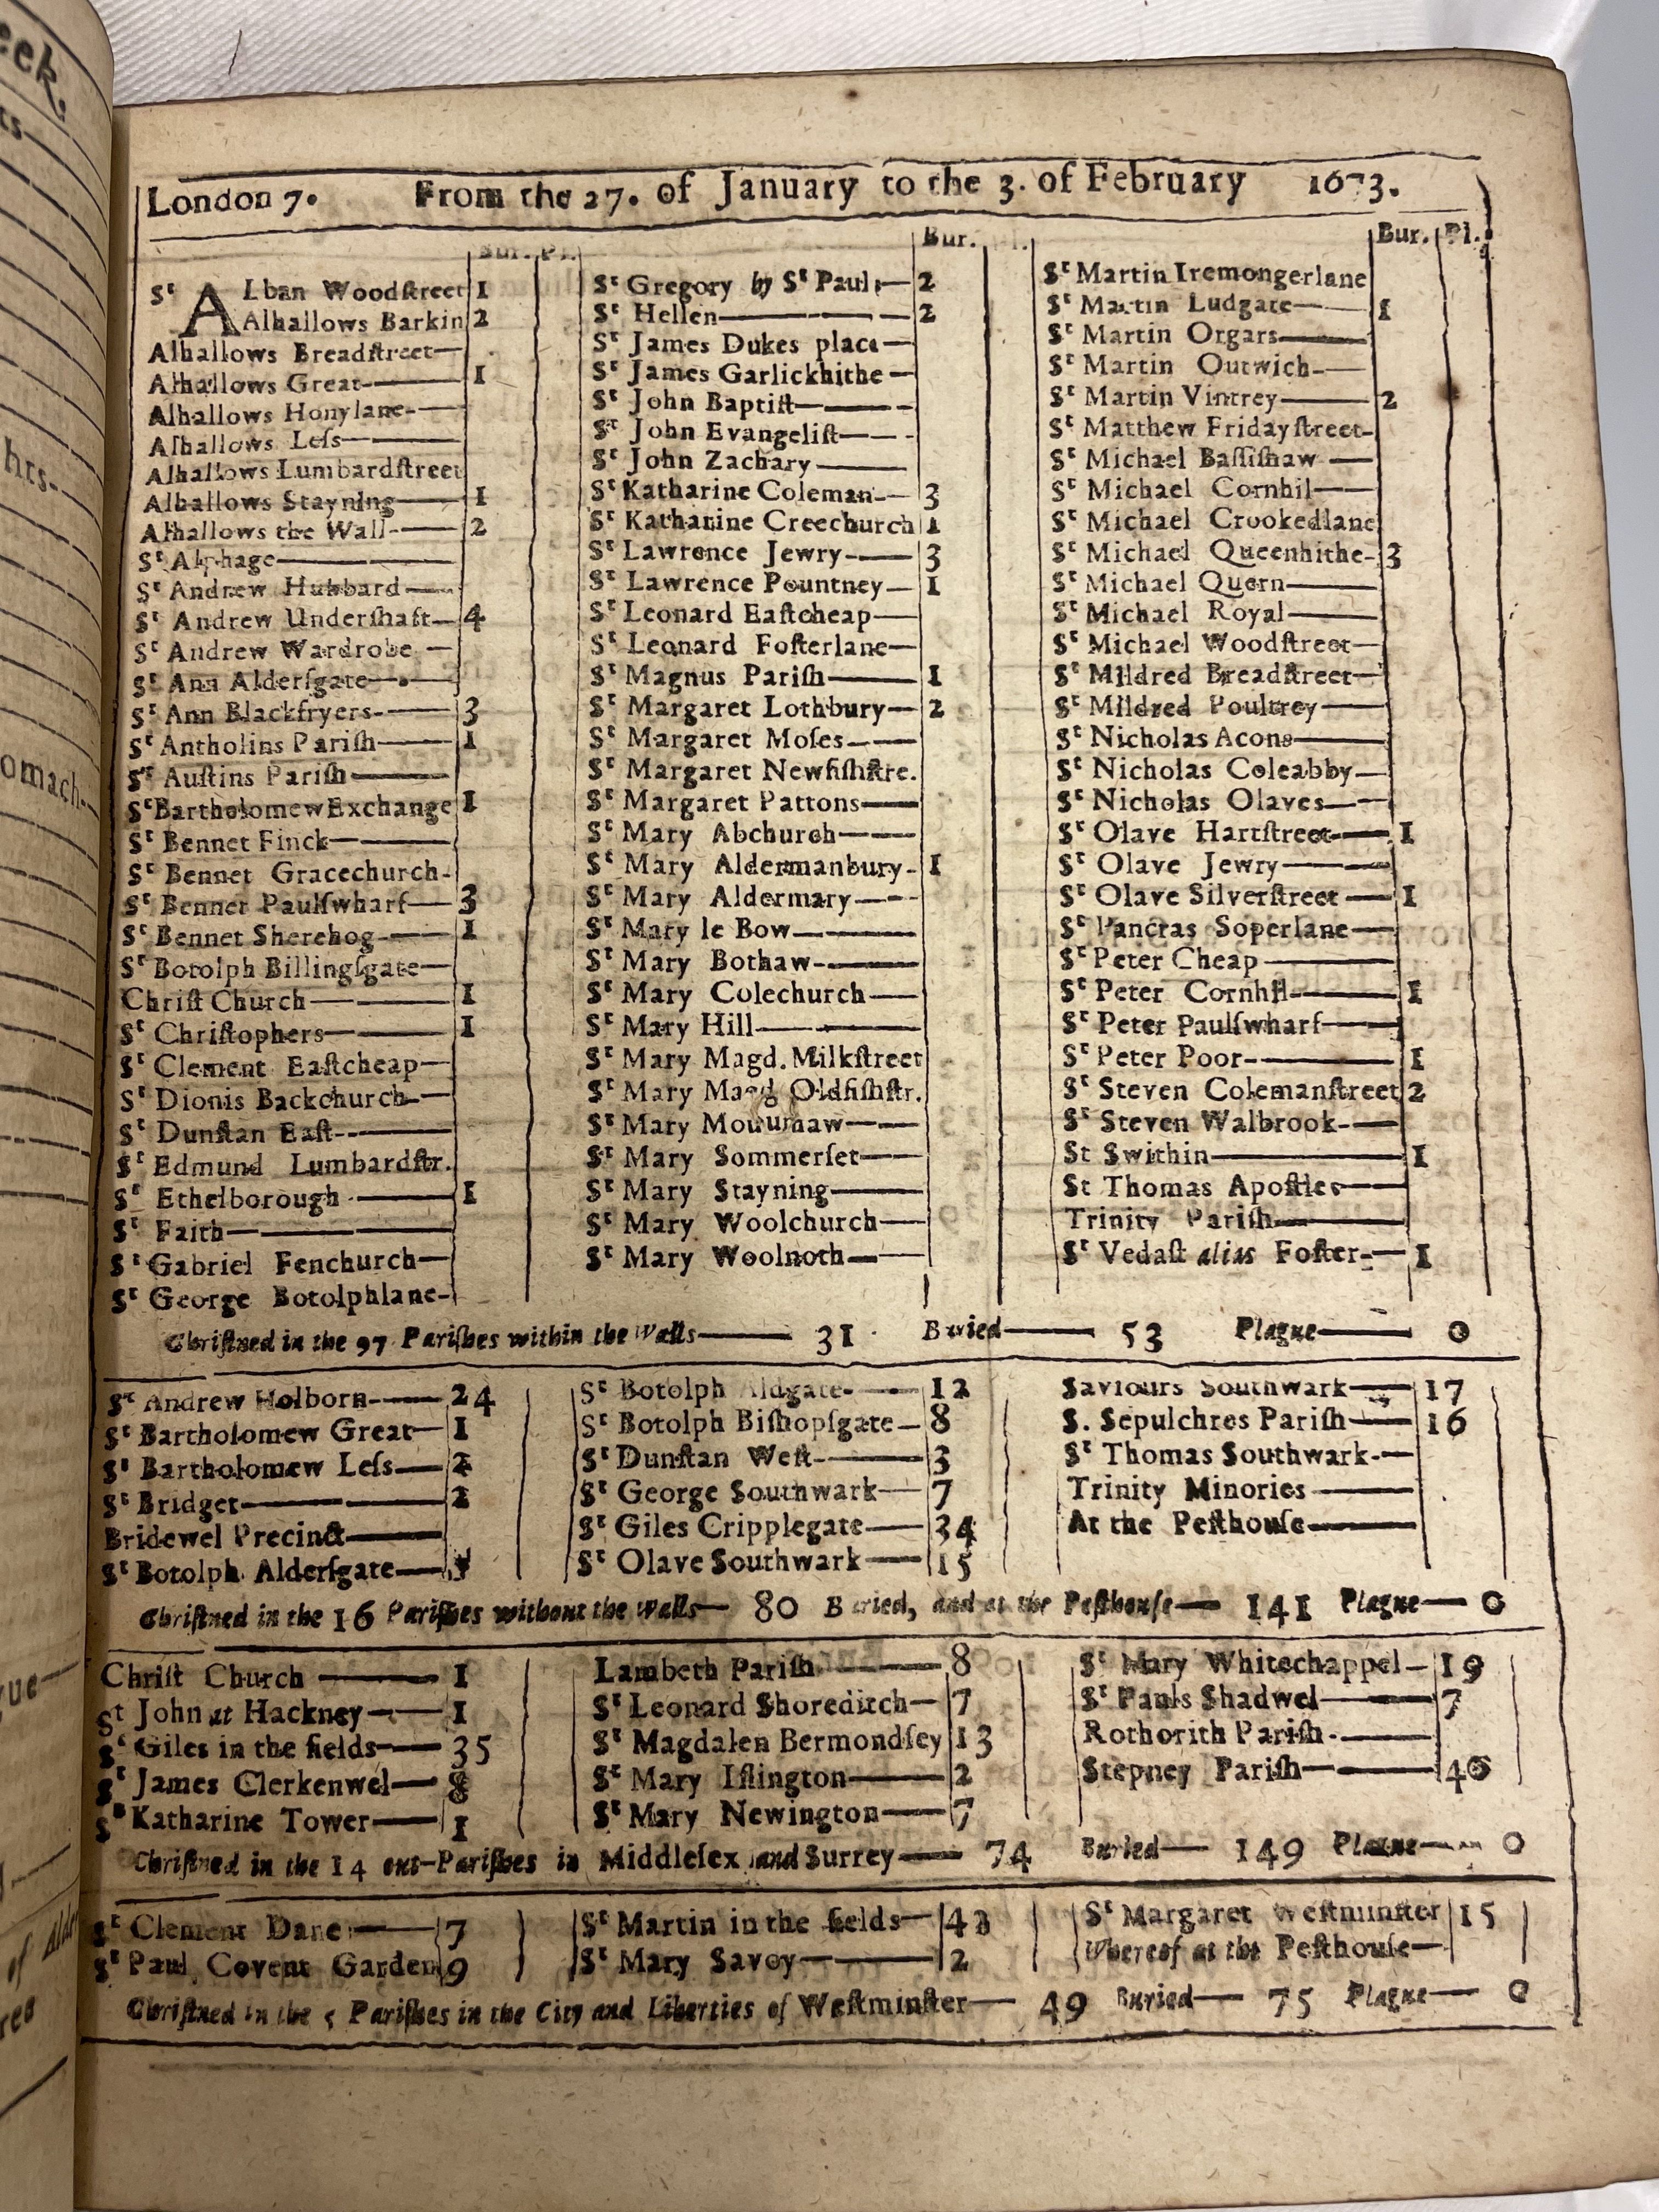 London 7. From the 27. of January to the 3. of February 1673.
Bur. Pl.
Sᵗ ALban Woodſtreet 1
Alhallows Barkin 2
Alhallows Breadſtreet—
Alhallows Great—— 1
Alhallows Honylane-—
Alhallows Leſs——
Alhallows Lumbardſtreet
Alhallows Stayning—— 1
Alhallows the Wall-—— 2
Sᵗ Alphage———
Sᵗ Andrew Hubbard——
Sᵗ Andrew Underſhaft— 4
Sᵗ Andrew Wardrobe —
Sᵗ Ann Alderſgate——
Sᵗ Ann Blackfryers-—— 3
Sᵗ Antholins Pariſh—— 1
Sᵗ Auſtins Pariſh———
Sᵗ Bartholomew Exchange 1
Sᵗ Bennet Finck———
Sᵗ Bennet Gracechurch-
Sᵗ Bennet Paulſwharf— 3
Sᵗ Bennet Sherehog-—— 1
Sᵗ Botolph Billingſgate—
Chriſt Church——— 1
Sᵗ Chriſtophers——— 1
Sᵗ Clement Eaſtcheap—
Sᵗ Dionis Backchurch-—
Sᵗ Dunſtan Eaſt--———
Sᵗ Edmund Lumbardſtr.
Sᵗ Ethelborough-——— 1
Sᵗ Faith————
Sᵗ Gabriel Fenchurch—
Sᵗ George Botolphlane-
Bur.
Sᵗ Gregory by Sᵗ Pauls— 2
Sᵗ Hellen———— 2
Sᵗ James Dukes place—
Sᵗ James Garlickhithe—
Sᵗ John Baptiſt———-
Sᵗ John Evangeliſt——-
Sᵗ John Zachary———
Sᵗ Katharine Coleman-— 3
Sᵗ Katharine Creechurch 1
Sᵗ Lawrence Jewry-—— 3
Sᵗ Lawrence Pountney— 1
Sᵗ Leonard Eaſtcheap—
Sᵗ Leonard Foſterlane—
Sᵗ Magnus Pariſh——— 1
Sᵗ Margaret Lothbury— 2
Sᵗ Margaret Moſes-——
Sᵗ Margaret Newfiſhſtre.
Sᵗ Margaret Pattons——
Sᵗ Mary Abchurch——
Sᵗ Mary Aldermanbury- 1
Sᵗ Mary Aldermary——
Sᵗ Mary le Bow———
Sᵗ Mary Bothaw-———
Sᵗ Mary Colechurch——
Sᵗ Mary Hill————
Sᵗ Mary Magd. Milkſtreet
Sᵗ Mary Magd Oldfiſhſtr.
Sᵗ Mary Mounthaw——
Sᵗ Mary Sommerſet——
Sᵗ Mary Stayning———
Sᵗ Mary Woolchurch—
Sᵗ Mary Woolnoth——
Bur. Pl.
Sᵗ Martin Iremongerlane
Sᵗ Martin Ludgate—— 1
Sᵗ Martin Orgars———
Sᵗ Martin Outwich-——
Sᵗ Martin Vintrey——— 2
Sᵗ Matthew Fridayſtreet-
Sᵗ Michael Baſſiſhaw——
Sᵗ Michael Cornhil——
Sᵗ Michael Crookedlane
Sᵗ Michael Queenhithe- 3
Sᵗ Michael Quern———
Sᵗ Michael Royal———
Sᵗ Michael Woodſtreet—
Sᵗ Mildred Breadſtreet—
Sᵗ Mildred Poultrey——
Sᵗ Nicholas Acons———
Sᵗ Nicholas Coleabby—
Sᵗ Nicholas Olaves——
Sᵗ Olave Hartſtreet-—— 1
Sᵗ Olave Jewry———
Sᵗ Olave Silverſtreet—— 1
Sᵗ Pancras Soperlane—
Sᵗ Peter Cheap————
Sᵗ Peter Cornhil-——— 1
Sᵗ Peter Paulſwharf——
Sᵗ Peter Poor-———— 1
Sᵗ Steven Colemanſtreet 2
Sᵗ Steven Walbrook-—
St Swithin————— 1
St Thomas Apoſtles——
Trinity Pariſh————
Sᵗ Vedaſt alias Foſter-— 1
Chriſtned in the 97 Pariſhes within the Walls—— 31 Buried—— 53 Plague—— 0
Sᵗ Andrew Holborn——— 24
Sᵗ Bartholomew Great— 1
Sᵗ Bartholomew Leſs— 2
Sᵗ Bridget———— 2
Bridewel Precinct———
Sᵗ Botolph Alderſgate—
Sᵗ Botolph Aldgate-—— 12
Sᵗ Botolph Biſhopſgate— 8
Sᵗ Dunſtan Weſt-——— 3
Sᵗ George Southwark— 7
Sᵗ Giles Cripplegate—— 34
Sᵗ Olave Southwark—— 15
Saviours Southwark—— 17
S. Sepulchres Pariſh—— 16
Sᵗ Thomas Southwark-—
Trinity Minories———
At the Peſthouſe———
Chriſtned in the 16 Pariſhes without the Walls— 80 Buried, and at the Peſthouſe— 141 Plague— 0
Chriſt Church———— 1
St John at Hackney—— 1
Sᵗ Giles in the fields—— 35
Sᵗ James Clerkenwel— 8
Sᵗ Katharine Tower—— 1
Lambeth Pariſh———— 8
Sᵗ Leonard Shoreditch— 7
Sᵗ Magdalen Bermondſey 13
Sᵗ Mary Iſlington——— 2
Sᵗ Mary Newington—— 7
Sᵗ Mary Whitechappel— 19
Sᵗ Pauls Shadwel——— 7
Rothorith Pariſh-———
Stepney Pariſh———— 40
Chriſtned in the 14 out-Pariſhes in Middleſex and Surrey—— 74 Buried— 149 Plague—— 0
Sᵗ Clement Danes——— 7
Sᵗ Paul Covent Garden 9
Sᵗ Martin in the fields—
Sᵗ Mary Savoy———— 2
Sᵗ Margaret Weſtminſter 15
Whereof at the Peſthouſe—
Chriſtned in the 5 Pariſhes in the City and Liberties of Weſtminſter— 49 Buried— 75 Plague— 0